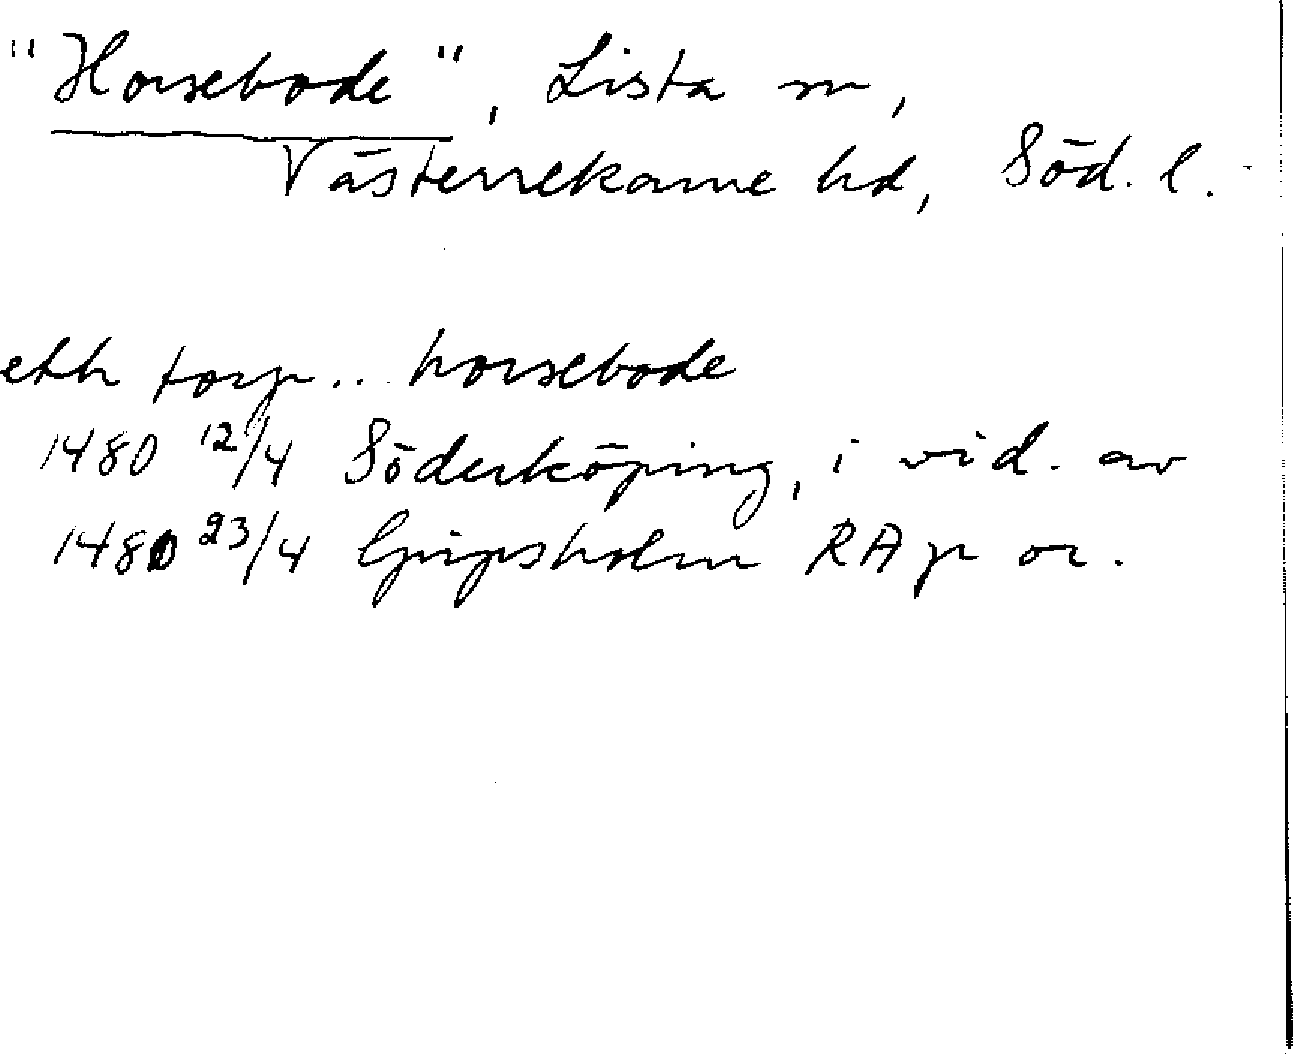 "Horsebode", Lista sn,
Västerrekarne hd, Söd. l.
etth torp .. horsebode
1480 12/4 Söderköping, i vid. av
1480 23/4 Gripsholm RAp or.